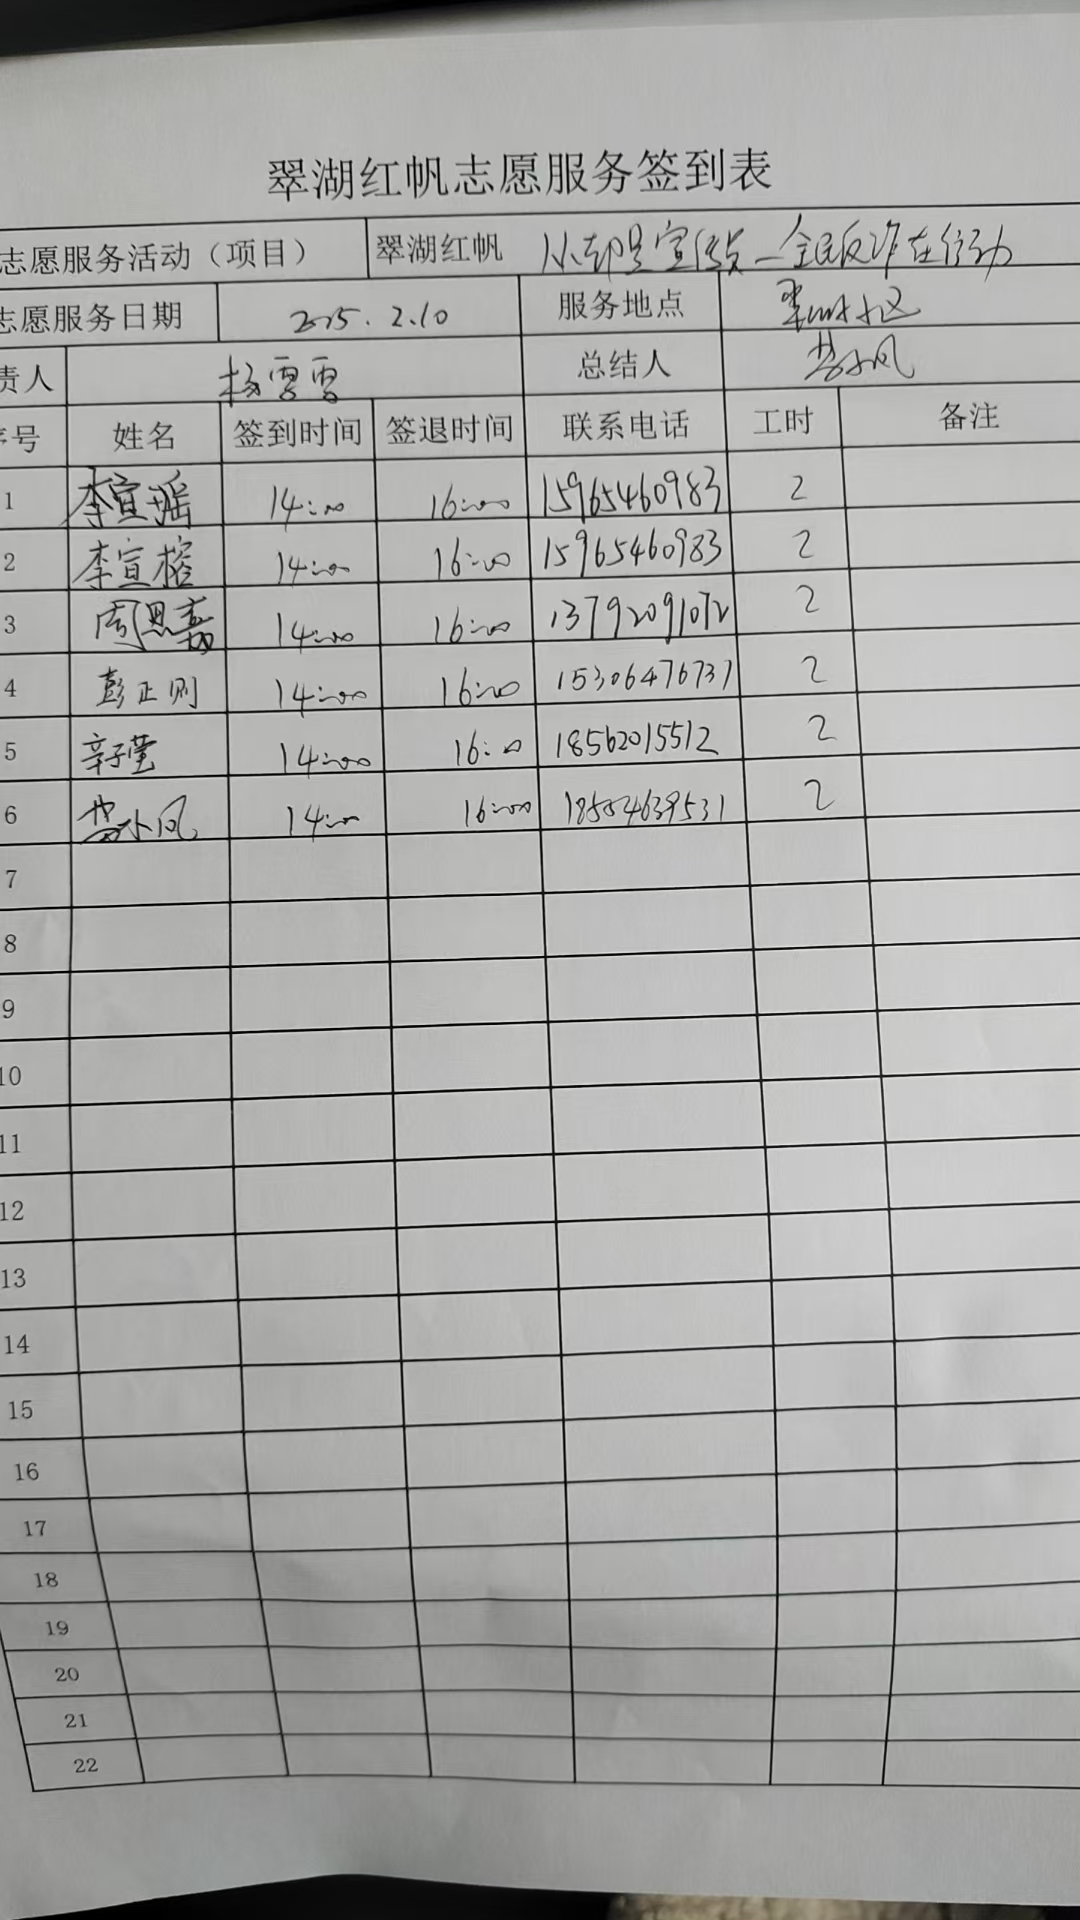 翠湖红帆志愿服务签到表
志愿服务活动（项目） 翠湖红帆 宣传员—全民反诈在行动
志愿服务日期 2025.2.10 服务地点 翠湖社区
责人 杨雪雪 总结人 小凤
序号 姓名 签到时间 签退时间 联系电话 工时 备注
1 李宣瑶 14:00 16:00 15965460983 2
2 李宣榕 14:00 16:00 15965460983 2
3 周恩嘉 14:00 16:00 13792091072 2
4 彭正则 14:00 16:00 15306476737 2
5 辛子莹 14:00 16:00 18562015512 2
6 小凤 14:00 16:00 18554639531 2
7
8
9
10
11
12
13
14
15
16
17
18
19
20
21
22